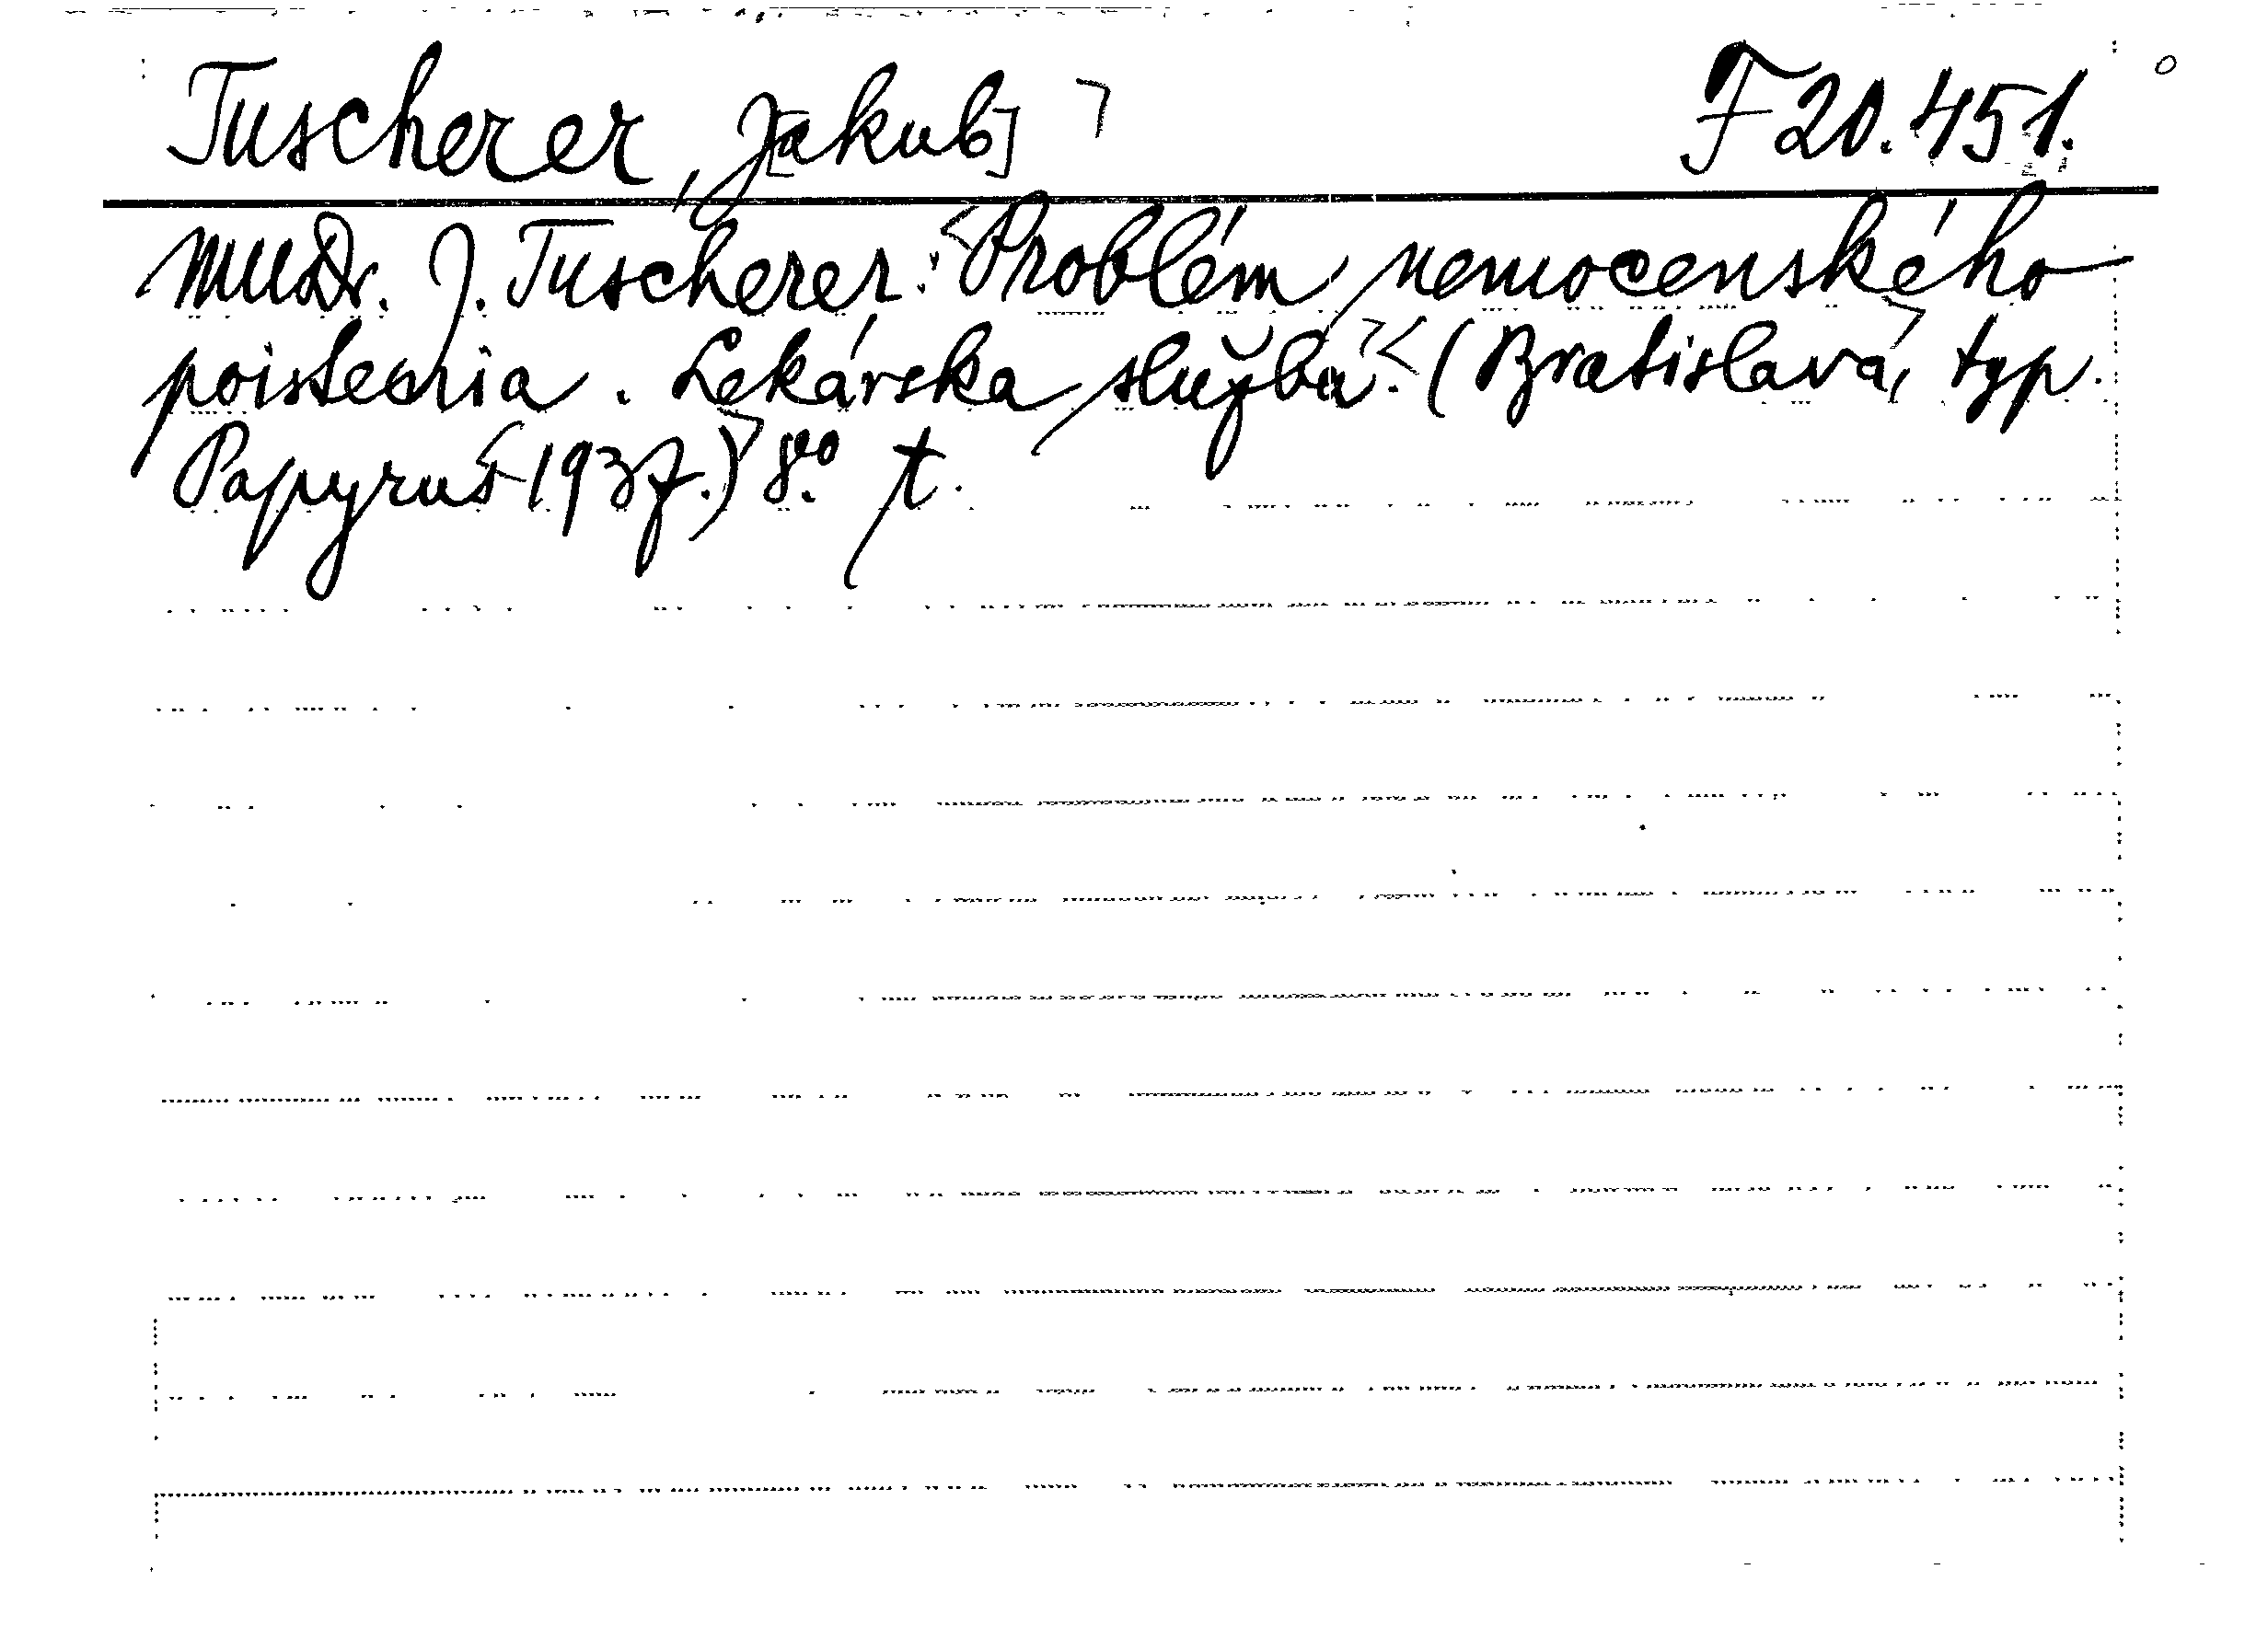 Tuscherer, J[akub] F 20.451.
MUDr. J. Tuscherer: Problém nemocenského
poistenia. Lekárska služba. (Bratislava, typ.
Papyrus 1937.) 8.° t.